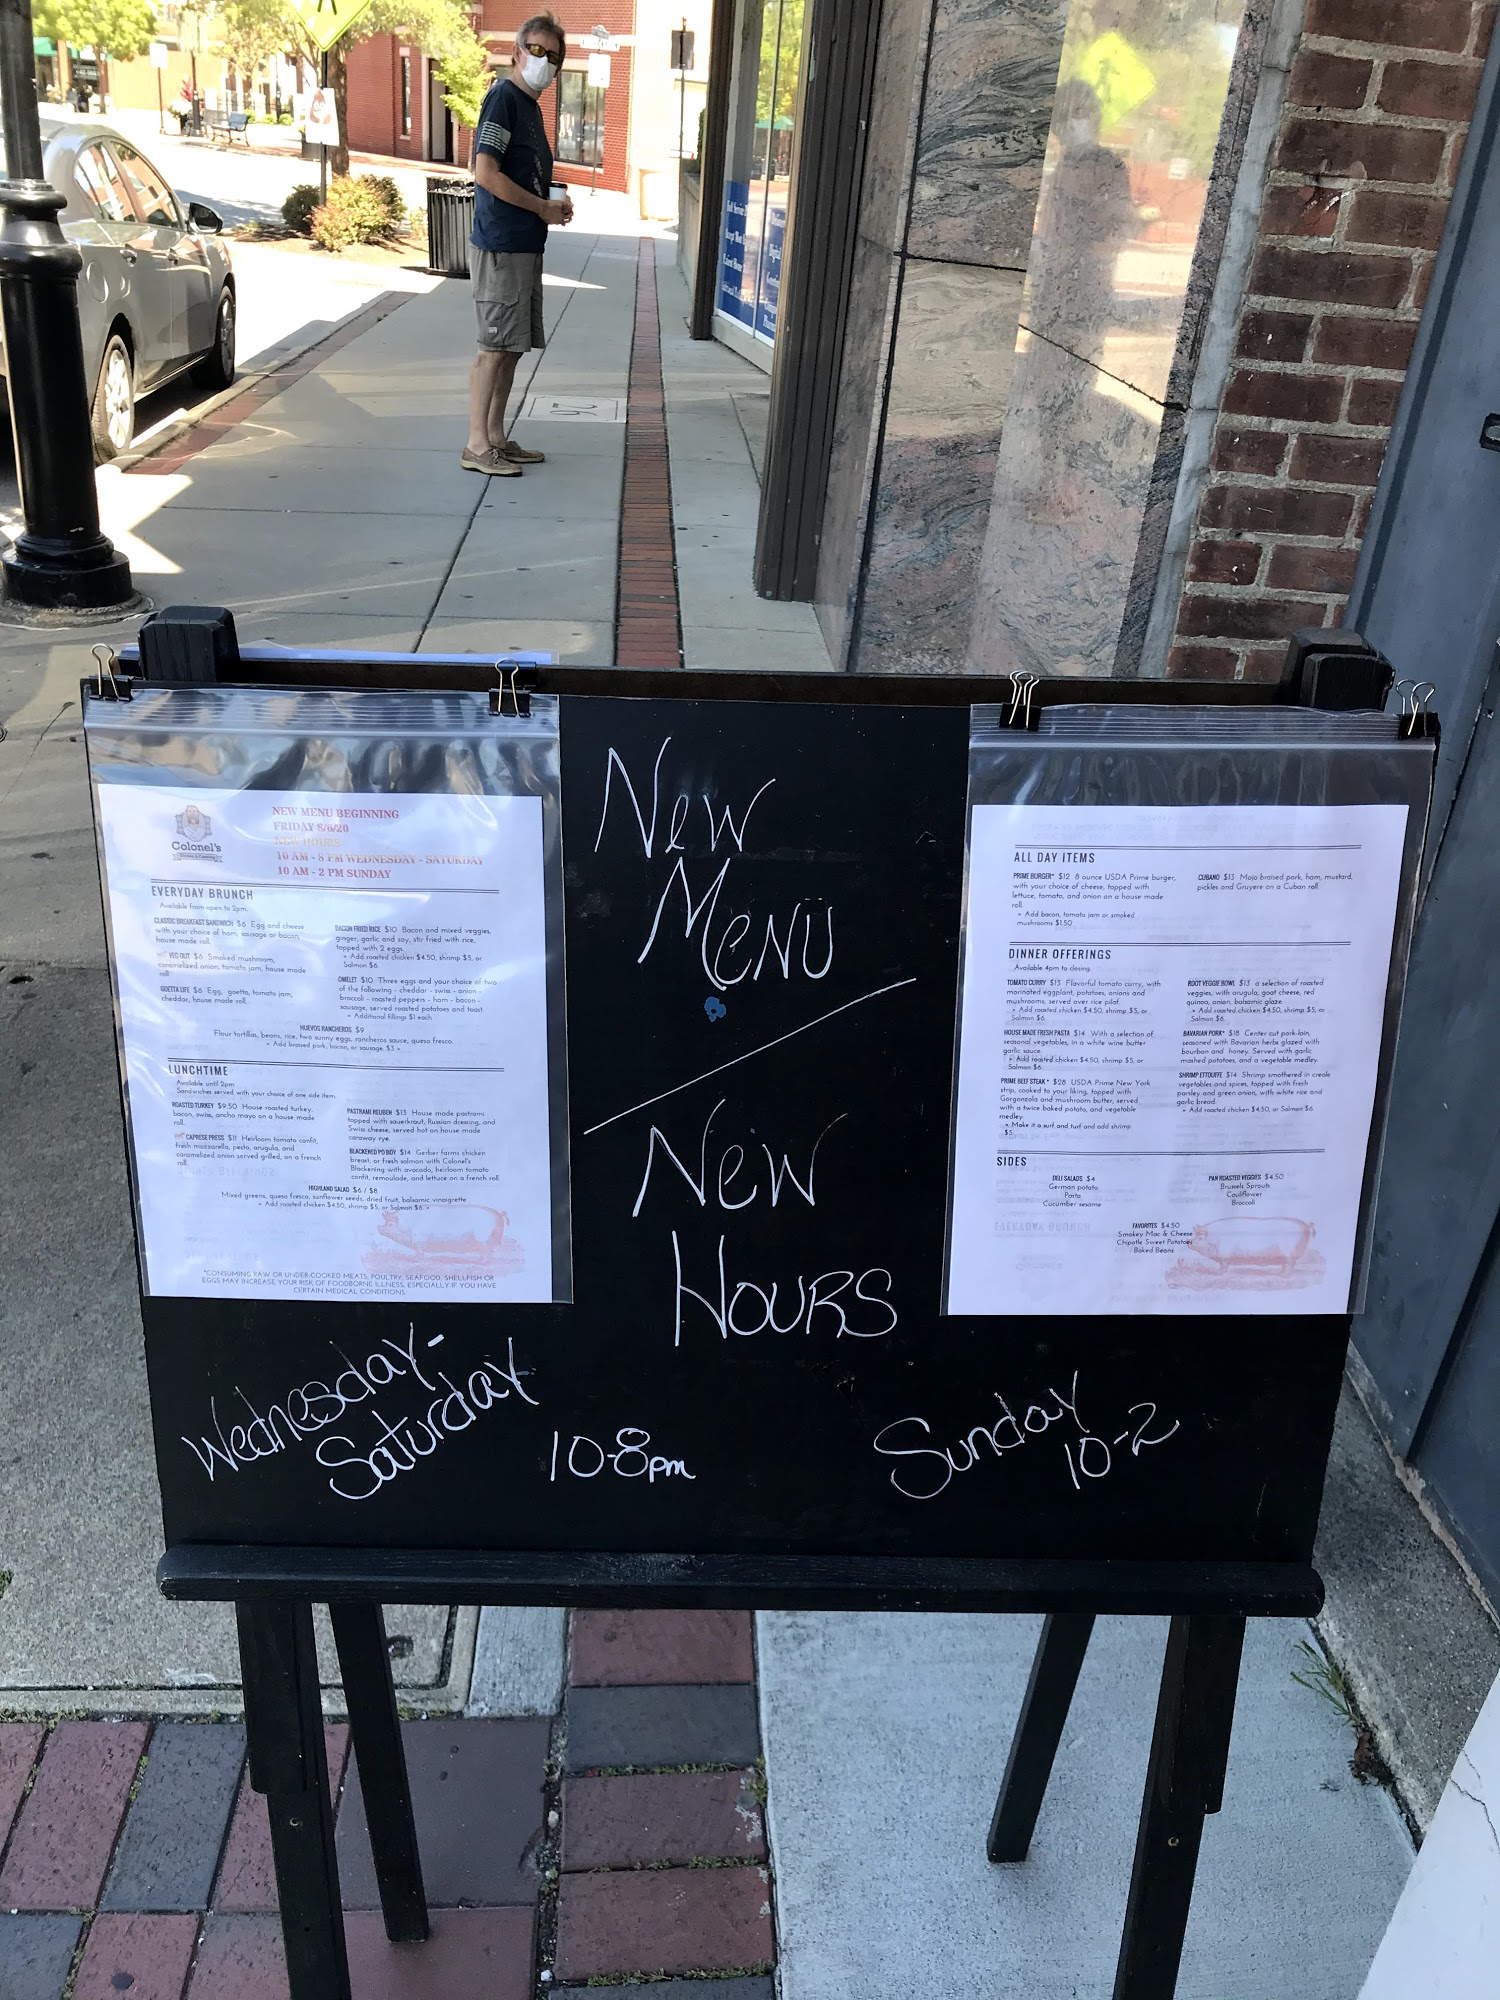 Colonel's
NEW MENU BEGINNING
FRIDAY 8/6/20
NEW HOURS
10 AM - 8 PM WEDNESDAY - SATURDAY
10 AM - 2 PM SUNDAY
EVERYDAY BRUNCH
Available from open to 2pm.
CLASSIC BREAKFAST SANDWICH $6 Egg and cheese
with your choice of ham, sausage or bacon,
house made roll.
VEG OUT $6 Smoked mushroom,
caramelized onion, tomato jam, house made
roll
GOETTA LIFE $6 Egg, goetta, tomato jam,
cheddar, house made roll.
BACON FRIED RICE $10 Bacon and mixed veggies,
ginger, garlic and soy, stir fried with rice,
topped with 2 eggs.
+ Add roasted chicken $4.50, shrimp $5, or
Salmon $6
OMELET $10 Three eggs and your choice of two
of the following - cheddar - swiss - onion -
broccoli - roasted peppers - ham - bacon -
sausage, served roasted potatoes and toast.
+ Additional fillings $1 each
HUEVOS RANCHEROS $9
Flour tortillas, beans, rice, two sunny eggs, rancheros sauce, queso fresco.
+ Add braised pork, bacon, or sausage. $3 +
LUNCHTIME
Available until 2pm
Sandwiches served with your choice of one side item.
ROASTED TURKEY $9.50 House roasted turkey,
bacon, swiss, ancho mayo on a house made
roll.
CAPRESE PRESS $11 Heirloom tomato confit,
fresh mozzarella, pesto, arugula, and
caramelized onion served grilled, on a french
roll.
PASTRAMI REUBEN $13 House made pastrami
topped with sauerkraut, Russian dressing, and
Swiss cheese, served hot on house made
caraway rye.
BLACKENED PO BOY $14 Gerber farms chicken
breast, or fresh salmon with Colonel's
Blackening with avocado, heirloom tomato
confit, remoulade, and lettuce on a french roll.
HIGHLAND SALAD $6 / $8
Mixed greens, queso fresco, sunflower seeds, dried fruit, balsamic vinaigrette
+ Add roasted chicken $4.50, shrimp $5, or Salmon $6. +
*CONSUMING RAW OR UNDER-COOKED MEATS, POULTRY, SEAFOOD, SHELLFISH OR
EGGS MAY INCREASE YOUR RISK OF FOODBORNE ILLNESS, ESPECIALLY IF YOU HAVE
CERTAIN MEDICAL CONDITIONS.
New
Menu
New
Hours
ALL DAY ITEMS
PRIME BURGER* $12 8 ounce USDA Prime burger,
with your choice of cheese, topped with
lettuce, tomato, and onion on a house made
roll.
+ Add bacon, tomato jam or smoked
mushrooms $1.50
CUBANO $13 Mojo braised pork, ham, mustard,
pickles and Gruyere on a Cuban roll.
DINNER OFFERINGS
Available 4pm to closing.
TOMATO CURRY $13 Flavorful tomato curry, with
marinated eggplant, potatoes, onions and
mushrooms, served over rice pilaf.
+ Add roasted chicken $4.50, shrimp $5, or
Salmon $6.
HOUSE MADE FRESH PASTA $14 With a selection of
seasonal vegetables, in a white wine butter
garlic sauce.
+ Add roasted chicken $4.50, shrimp $5, or
Salmon $6
PRIME BEEF STEAK * $28 USDA Prime New York
strip, cooked to your liking, topped with
Gorgonzola and mushroom butter, served
with a twice baked potato, and vegetable
medley.
+ Make it a surf and turf and add shrimp
$5
ROOT VEGGIE BOWL $13 a selection of roasted
veggies, with arugula, goat cheese, red
quinoa, onion, balsamic glaze.
+ Add roasted chicken $4.50, shrimp $5, or
Salmon $6.
BAVARIAN PORK* $18 Center cut pork-loin,
seasoned with Bavarian herbs glazed with
bourbon and honey. Served with garlic
mashed potatoes, and a vegetable medley.
SHRIMP ETTOUFFE $14 Shrimp smothered in creole
vegetables and spices, topped with fresh
parsley and green onion, with white rice and
garlic bread.
+ Add roasted chicken $4.50, or Salmon $6.
SIDES
DELI SALADS $4
German potato
Pasta
Cucumber sesame
PAN ROASTED VEGGIES $4.50
Brussels Sprouts
Cauliflower
Broccoli
FAVORITES $4.50
Smokey Mac & Cheese
Chipotle Sweet Potatoes
Baked Beans
Wednesday-
Saturday
10-8pm
Sunday
10-2